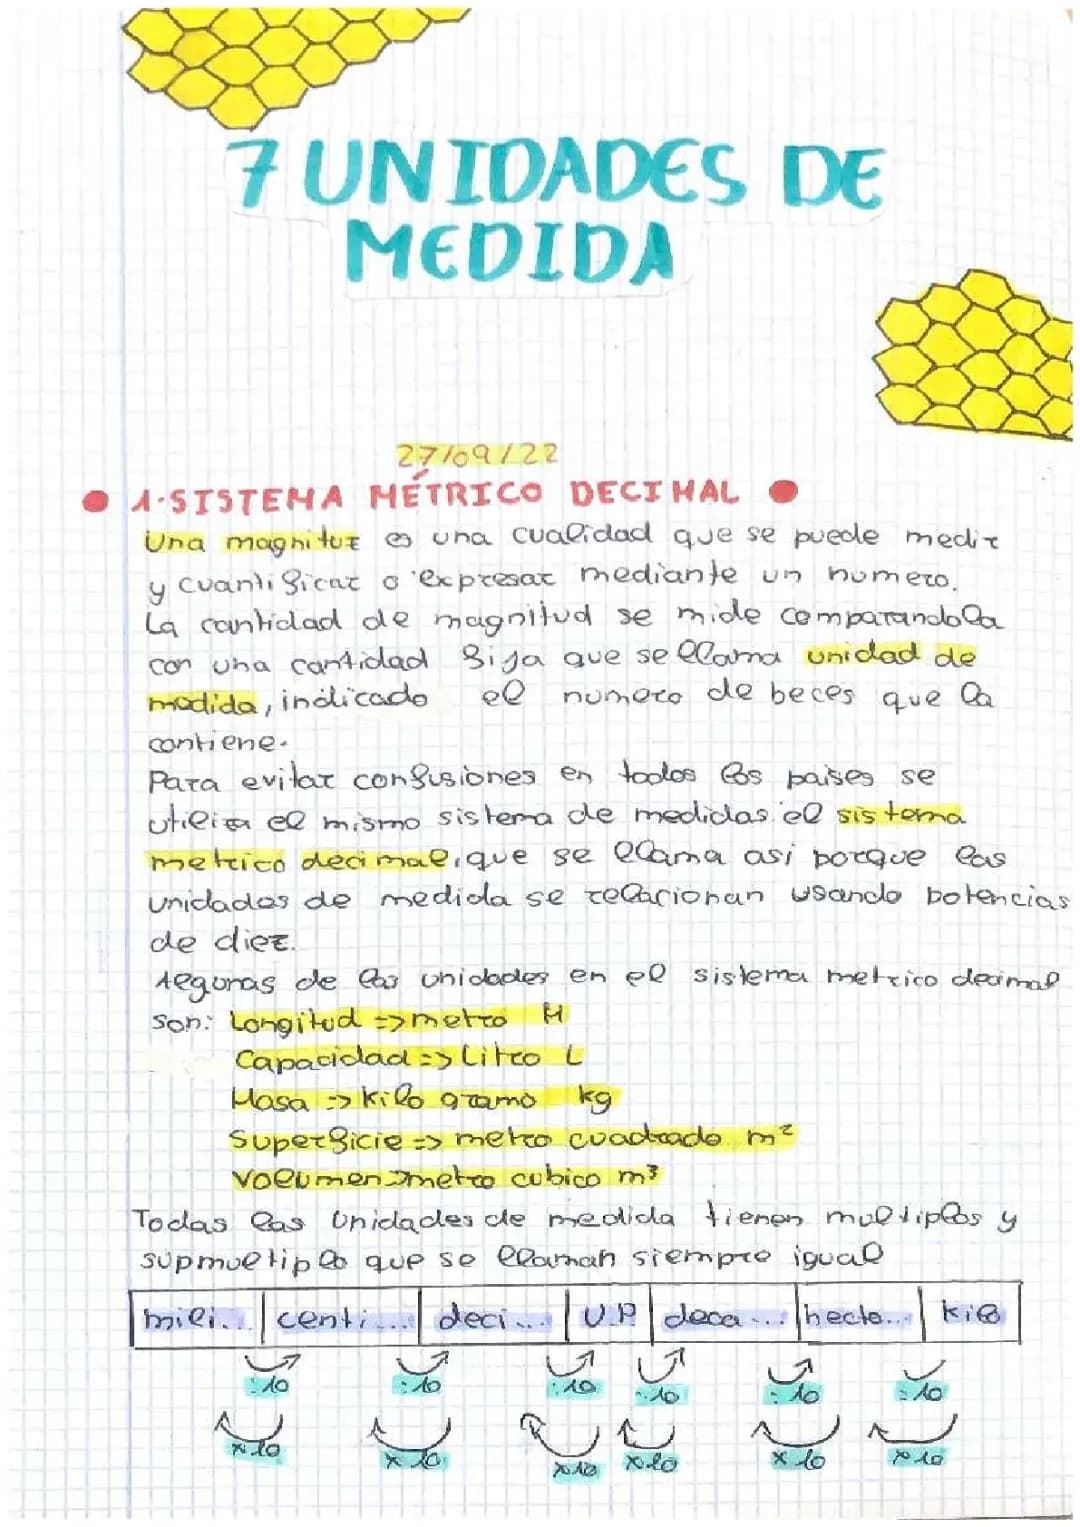 7 UNIDADES DE
MEDIDA
27/09/22
1·SISTEMA MÉTRICO DECIMAL
Una magnitur es una cualidad que se puede medir
y cuantificar o expresar mediante un numero.
La cantidad de magnitud se mide comparandola
con una cantidad fija que se llama unidad de
medida, indicado el numero de beces que la
contiene.
Para evitar confusiones en todos los paises se
utiliza el mismo sistema de medidas el sistema
metrico decimal, que se llama asi porque las
unidades de medida se relacionan usando potencias
de diez.
Algunas de las unidades en el sistema metrico decimal
son: Longitud => metro M
Capacidad => Litro L
Masa => kilo gramo kg
Superficie => metro cuadrado m²
Volumen => metro cubico m³
Todas las unidades de medida tienen multiplos y
supmultiplo que se llaman siempre igual
mili... centi... deci... U.P deca... hecto... kilo
:10 :10 :10 :10 :10 :10
x10 x10 x10 x10 x10 x10